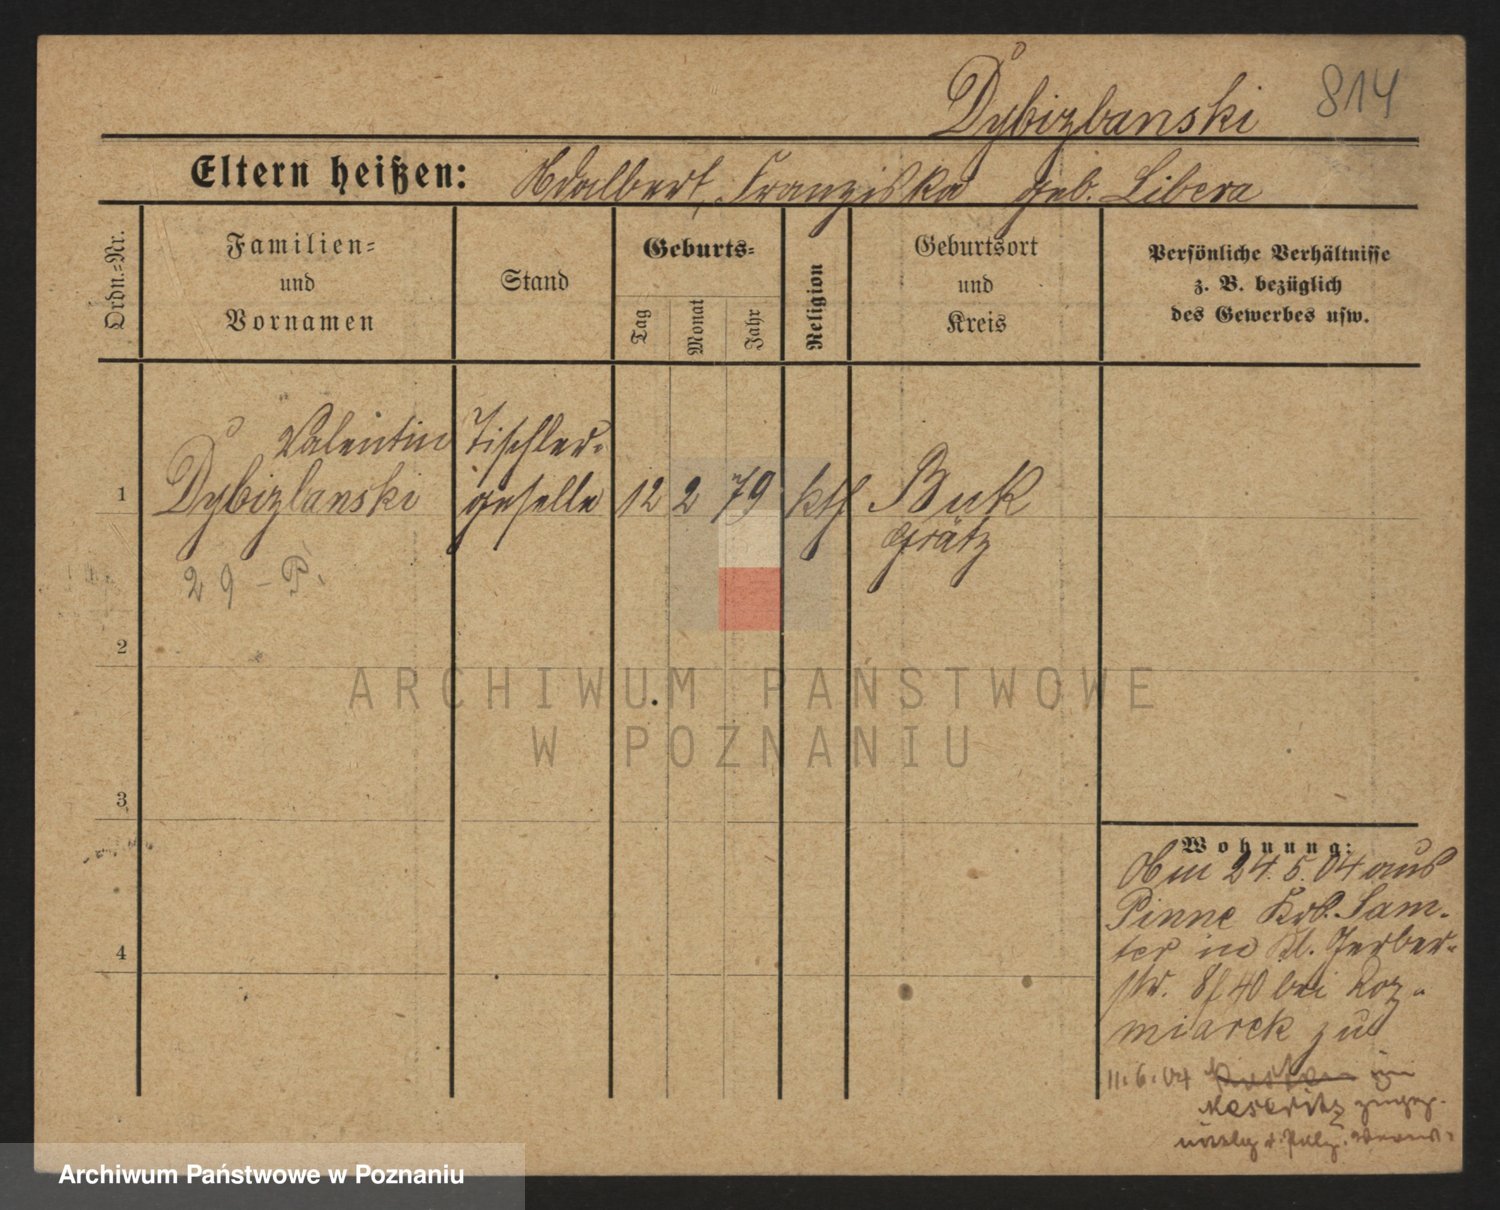 Dybizbanski 814
Eltern heißen: Adalbert, Franziska geb. Libera
Ordn.=Nr.
Familien=
und
Vornamen
Stand
Geburts=
Tag
Monat
Jahr
Religion
Geburtsort
und
Kreis
Persönliche Verhältnisse
z. B. bezüglich
des Gewerbes usw.
Valentin Tischler-
1 Dybizbanski geselle 12 2 79 kth Buk
Grätz
29 - P.
2
ARCHIWUM PAŃSTWOWE
W POZNANIU
3
4
Wohnung:
Am 24.5.04 aus
Pinne Krs. Sam-
ter in Kl. Gerber-
str. 8 bei Koz-
miarek zu
11.6.04
Meseritz
Archiwum Państwowe w Poznaniu